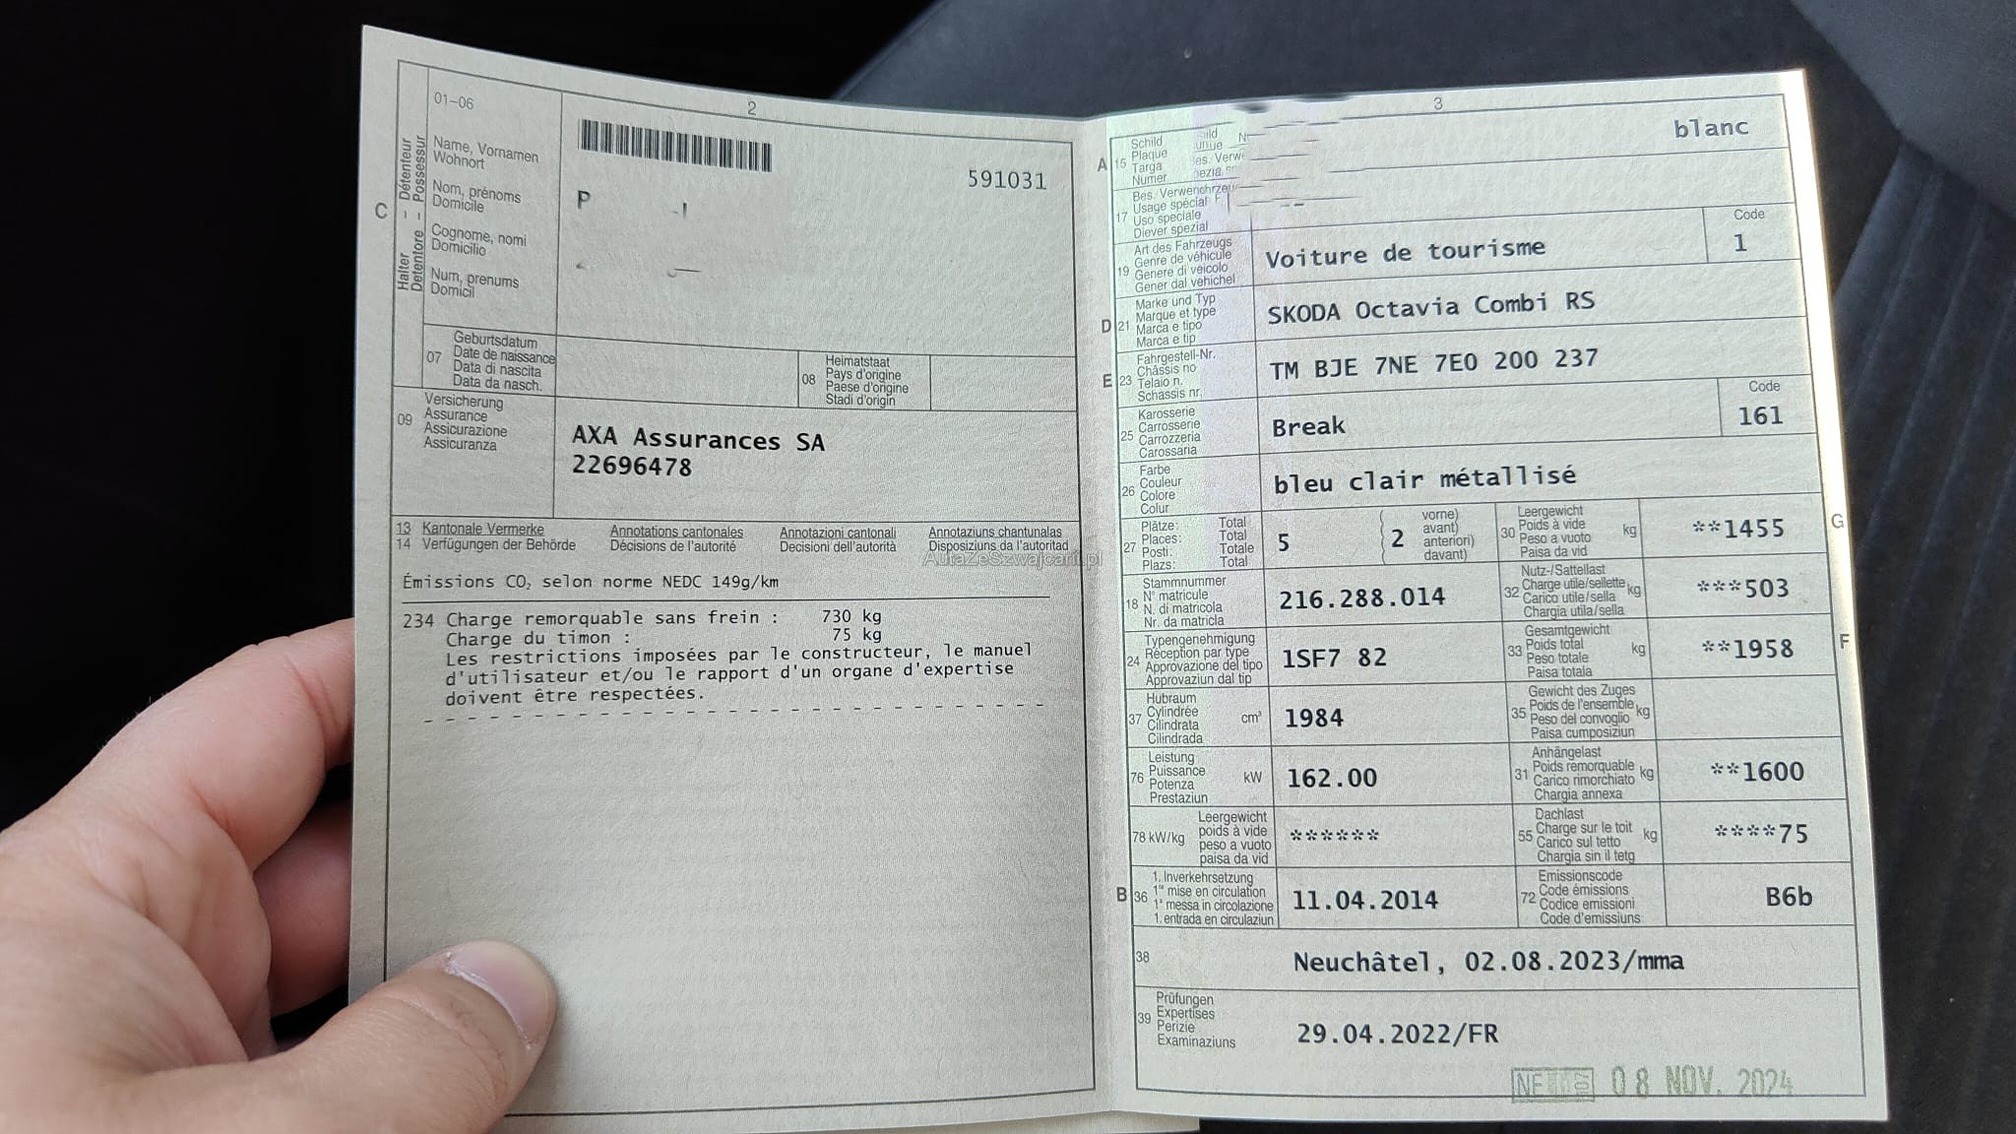 2
01-06
Halter - Détenteur
Detentore - Possessur
C
Name, Vornamen
Wohnort
Nom, prénoms
Domicile
Cognome, nomi
Domicilio
Num, prenums
Domicil
591031
P
07
Geburtsdatum
Date de naissance
Data di nascita
Data da nasch.
08
Heimatstaat
Pays d'origine
Paese d'origine
Stadi d'origin
09
Versicherung
Assurance
Assicurazione
Assicuranza
AXA Assurances SA
22696478
13 Kantonale Vermerke Annotations cantonales Annotazioni cantonali Annotaziuns chantunalas
14 Verfügungen der Behörde Décisions de l'autorité Decisioni dell'autorità Disposiziuns da l'autoritad
AutaZeSzwajcarii.pl
Émissions CO₂ selon norme NEDC 149g/km
234 Charge remorquable sans frein : 730 kg
Charge du timon : 75 kg
Les restrictions imposées par le constructeur, le manuel
d'utilisateur et/ou le rapport d'un organe d'expertise
doivent être respectées.
3
A 15
Schild
Plaque
Targa
Numer
blanc
17
Bes. Verwendg
Usage spécial
Uso speciale
Diever spezial
19
Art des Fahrzeugs
Genre de véhicule
Genere di veicolo
Gener dal vehichel
Voiture de tourisme
Code
1
D 21
Marke und Typ
Marque et type
Marca e tipo
Marca e tip
SKODA Octavia Combi RS
E 23
Fahrgestell-Nr.
Châssis no
Telaio n.
Schassis nr.
TM BJE 7NE 7E0 200 237
25
Karosserie
Carrosserie
Carrozzeria
Carossaria
Break
Code
161
26
Farbe
Couleur
Colore
Colur
bleu clair métallisé
27
Plätze: Total
Places: Total
Posti: Totale
Plazs: Total
5
2
vorne)
avant)
anteriori)
davant)
30
Leergewicht
Poids à vide
Peso a vuoto
Paisa da vid
kg
**1455
G
18
Stammnummer
N° matricule
N. di matricola
Nr. da matricla
216.288.014
32
Nutz-/Sattellast
Charge utile/sellette
Carico utile/sella
Chargia utila/sella
kg
***503
24
Typengenehmigung
Réception par type
Approvazione del tipo
Approvaziun dal tip
1SF7 82
33
Gesamtgewicht
Poids total
Peso totale
Paisa totala
kg
**1958
F
37
Hubraum
Cylindrée
Cilindrata
Cilindrada
cm³
1984
35
Gewicht des Zuges
Poids de l'ensemble
Peso del convoglio
Paisa cumposiziun
kg
76
Leistung
Puissance
Potenza
Prestaziun
kW
162.00
31
Anhängelast
Poids remorquable
Carico rimorchiato
Chargia annexa
kg
**1600
78 kW/kg
Leergewicht
poids à vide
peso a vuoto
paisa da vid
******
55
Dachlast
Charge sur le toit
Carico sul tetto
Chargia sin il tetg
kg
****75
B 36
1. Inverkehrsetzung
1re mise en circulation
1a messa in circolazione
1. entrada en circulaziun
11.04.2014
72
Emissionscode
Code émissions
Codice emissioni
Code d'emissiuns
B6b
38
Neuchâtel, 02.08.2023/mma
39
Prüfungen
Expertises
Perizie
Examinaziuns
29.04.2022/FR
NE
08 NOV. 2024